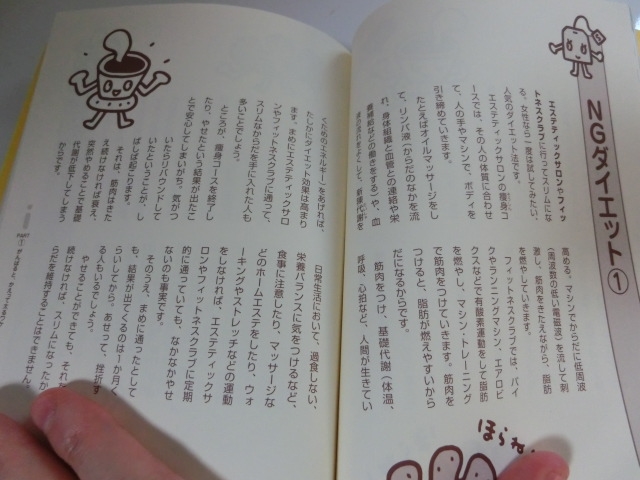 NGダイエット①
エステティックサロンやフィッ
トネスクラブに行ってスリムにな
る。女性なら一度は試してみたい、
人気のダイエット法です。
エステティックサロンの痩身コ
ースでは、その人の体質に合わせ
て、人の手やマシンで、ボディを
引き締めていきます。
たとえばオイルマッサージをし
て、リンパ液(からだのなかを流
れ、身体組織と血管との連絡や栄
養補給などの働きをする)や、血
液の流れをよくして、新陳代謝を
高める。マシンでからだに低周波
(周波数の低い電磁波)を流して刺
激し、筋肉をきたえながら、脂肪
を燃やしていきます。
フィットネスクラブでは、バイ
クやランニングマシン、エアロビ
クスなどで有酸素運動をして脂肪
を燃やし、マシン・トレーニング
で筋肉をつけていきます。筋肉を
つけると、脂肪が燃えやすいから
だになるからです。
筋肉をつけ、基礎代謝(体温、
呼吸、心拍など、人間が生きてい
ほらね
くためのエネルギー)をあげれば、
たしかにダイエット効果は高まり
ます。まめにエステティックサロ
ンやフィットネスクラブに通って、
スリムなからだを手に入れた人も
多いことでしょう。
ところが、痩身コースを終了し
たり、やせたという結果が出たこ
とで安心してしまいがち。気がつ
いたらリバウンドして
いたということが、し
ばしば起こります。
それは、筋肉はきた
え続けなければ衰え、
突然やめることで基礎
代謝が低下してしまう
からです。
日常生活において、過食しない、
栄養バランスに気をつけるなど、
食事に注意したり、マッサージな
どのホームエステをしたり、ウォ
ーキングやストレッチなどの運動
をしなければ、エステティックサ
ロンやフィットネスクラブに定期
的に通っていても、なかなかやせ
ないのも事実です。
そのうえ、まめに通ったとして
も、結果が出てくるのは1か月く
らいしてから。あせって、挫折す
る人もいるでしょう。
やせることができても、それを
続けなければ、スリムになったか
らだを維持することはできません。
PART①